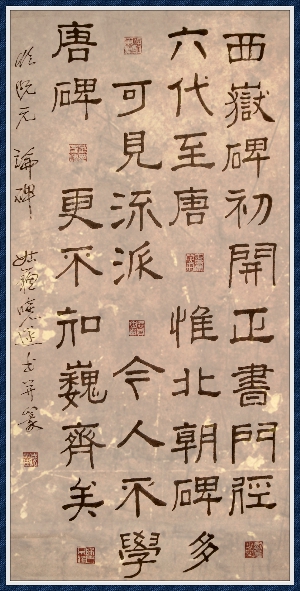 西嶽碑初開正書門徑
六代至唐惟北朝碑多
可見流派今人不學
唐碑更不知魏齊美
臨阮元論碑姑蘇